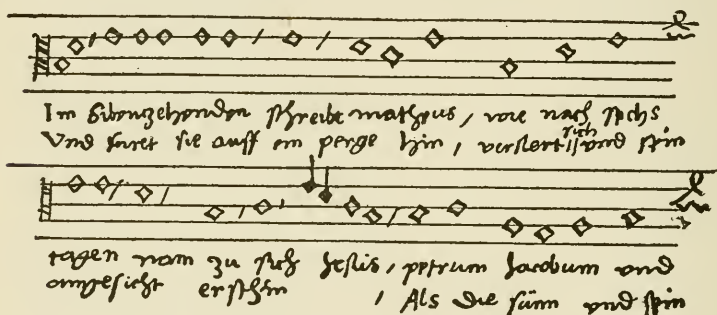 Im Sibenzehenden schreibt matheus, wie nach sechs
Und furet sie auff ein perge hin, verklert sich und sein
tagen nam zu sich Jesus, petrum Jacobum und
angesicht erschin, Als die sunn und sein